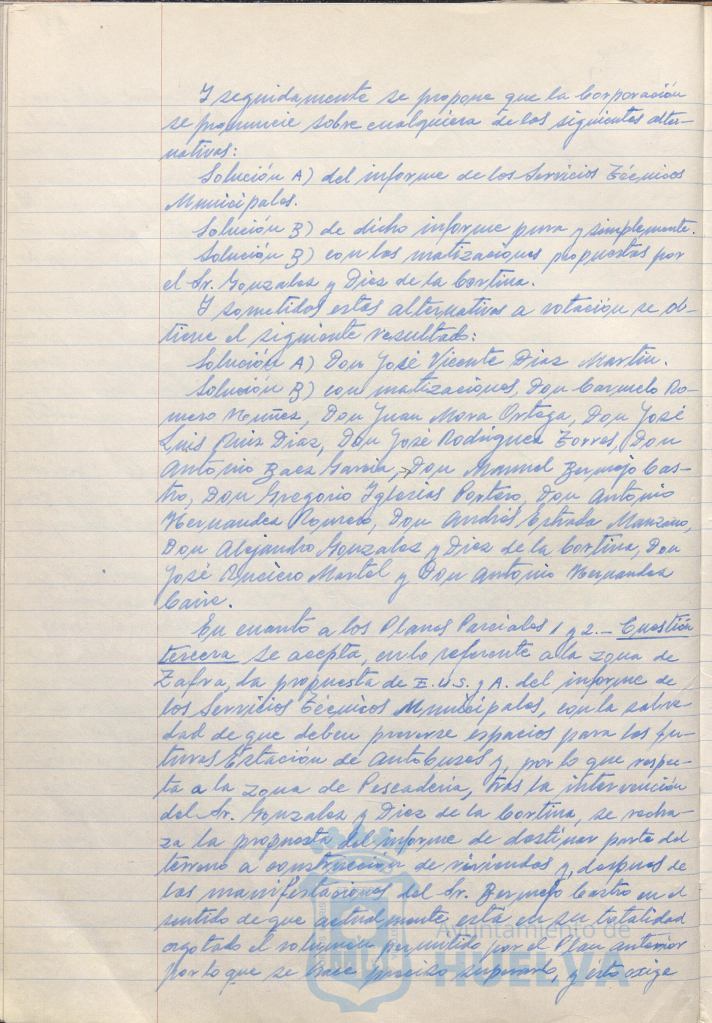 Y seguidamente se propone que la Corporación
se pronuncie sobre cualquiera de los siguientes alter-
nativas:
Solución A) del informe de los Servicios Técnicos
Municipales.
Solución B) de dicho informe pura y simplemente.
Solución B) con las matizaciones propuestas por
el Sr. Gonzalez y Diez de la Cortina.
Y sometidos estas alternativas a votación se ob-
tiene el siguiente resultado:
Solución A) Don José Vicente Diaz Martin.
Solución B) con matizaciones, Don Carmelo Ro-
mero Nuñez, Don Juan Mora Ortega, Don José
Luis Ruiz Díaz, Don José Rodriguez Torres, Don
Antonio Baez Garcia, Don Manuel Bermejo Cas-
tro, Don Gregorio Iglesias Portero, Don Antonio
Hernandez Romero, Don Andrés Estrada Manzano,
Don Alejandro Gonzalez y Diez de la Cortina, Don
José Martel y Don Antonio Hernandez
En cuanto a los Planes Parciales 1 y 2.- Cuestión
tercera se acepta, en lo referente a la zona de
Zafra, la propuesta de E.U.S. y A. del informe de
los Servicios Técnicos Municipales, con la salve-
dad de que deben preverse espacios para las fu-
turas Estación de Autobuses y, por lo que respec-
ta a la zona de Pescadería, tras la intervención
del Sr. Gonzalez y Diez de la Cortina, se recha-
za la propuesta del informe de destinar parte del
terreno a construcción de viviendas y, despues de
las manifestaciones del Sr. Bermejo Castro en el
sentido de que actualmente está en su totalidad
agotado el volumen permitido por el Plan anterior
por lo que se hace preciso superarlo, y esto exige
Ayuntamiento de
HUELVA